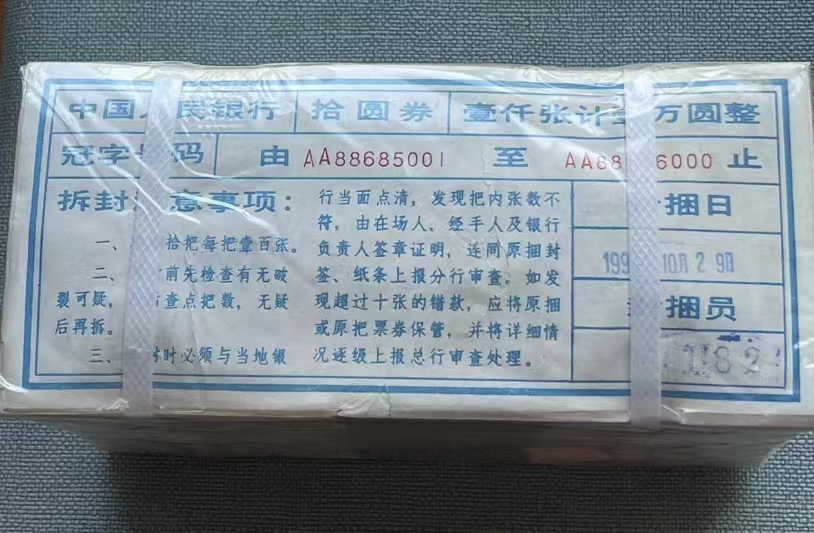 中国人民银行 拾圆券 壹仟张计壹万圆整
冠字号码 由 AA88685001 至 AA88686000 止
拆封注意事项：
一、 拾把每把壹百张。
二、 前先检查有无破
裂可疑， 查点把数，无疑
后再拆。
三、 封时必须与当地银
行当面点清，发现把内张数不
符，由在场人、经手人及银行
负责人签章证明，连同原捆封
签、纸条上报分行审查。如发
现超过十张的错款，应将原捆
或原把票券保管，并将详细情
况逐级上报总行审查处理。
捆日
199 10月29日
捆员
182